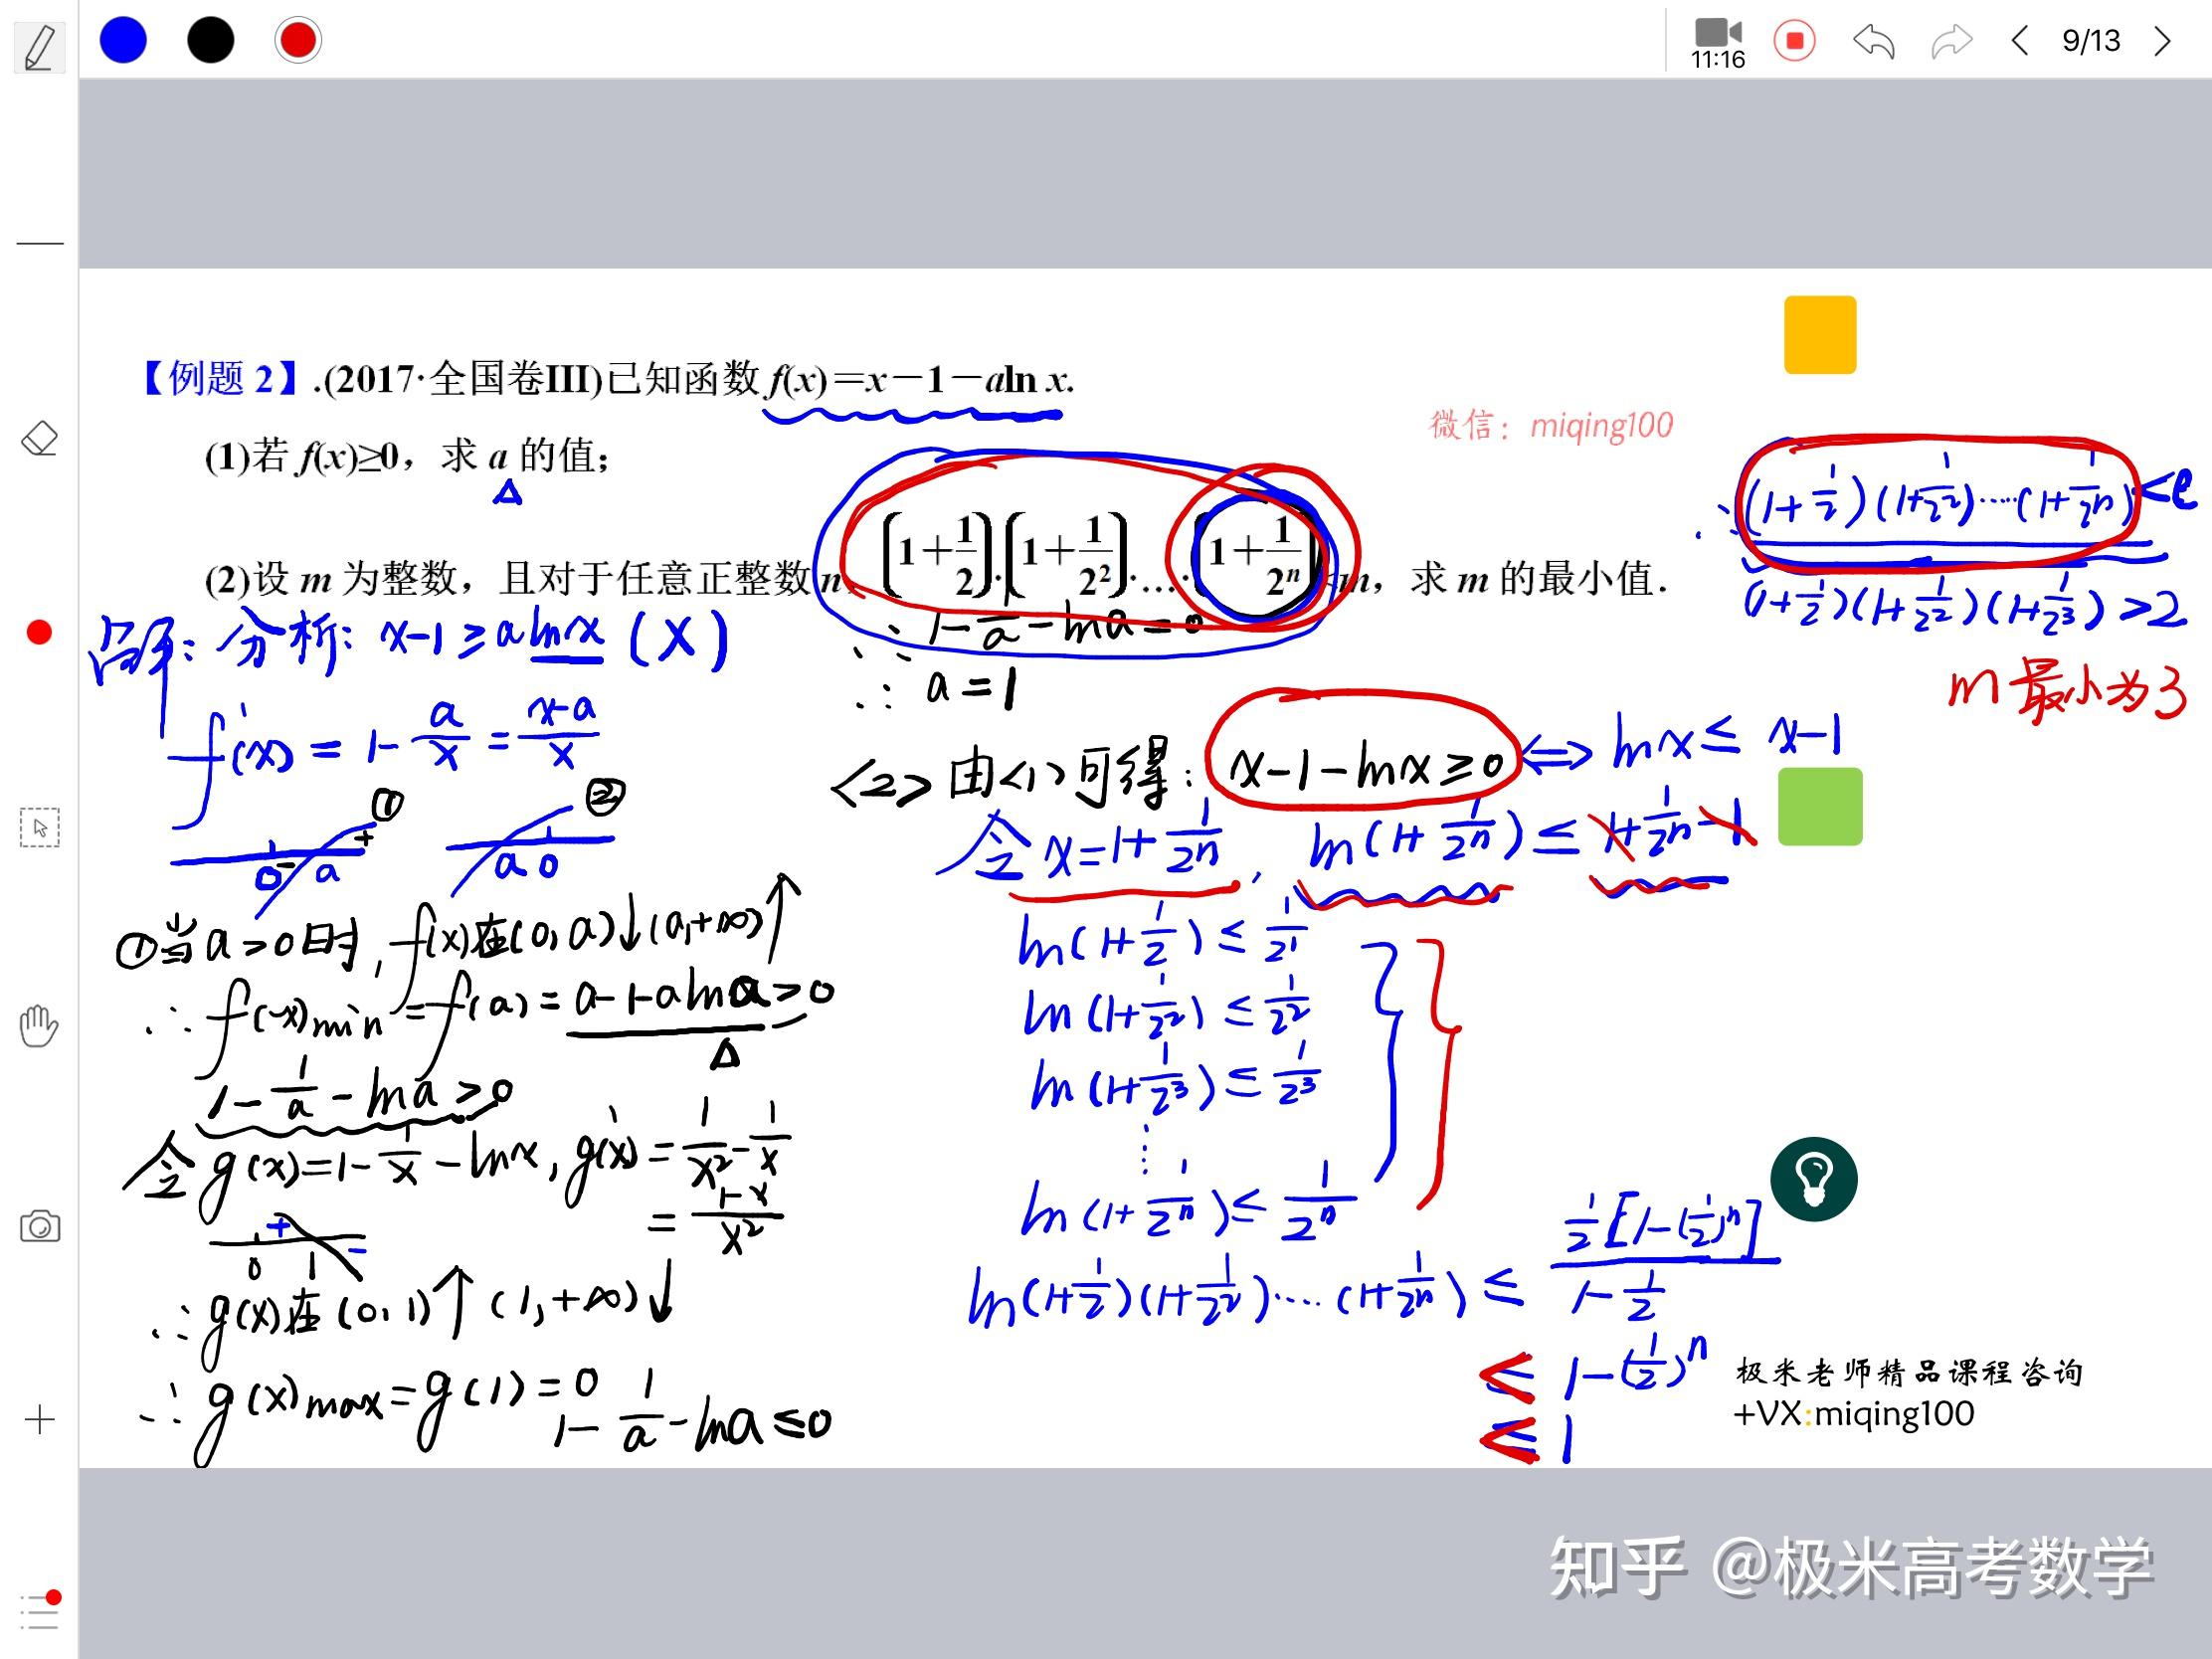 11:16
9/13
【例题2】.(2017·全国卷III)已知函数 f(x)=x-1-aln x.
微信：miqing100
(1)若 f(x)≥0，求 a 的值；
Δ
(2)设 m 为整数，且对于任意正整数 n，(1+1/2)·(1+1/2²)·…·(1+1/2ⁿ)<m，求 m 的最小值.
解：分析：x-1≥alnx (X)
f'(x)=1-a/x=(x-a)/x
① ②
0 a +
a 0
①当a>0时，f(x)在(0,a)↓(a,+∞)↑
∴f(x)min=f(a)=a-1-alna≥0
Δ
1-1/a-lna≥0
令g(x)=1-1/x-lnx，g'(x)=1/x²-1/x
=(1-x)/x²
+ -
0 1
∴g(x)在(0,1)↑(1,+∞)↓
∴g(x)max=g(1)=0
1-1/a-lna≤0
∴1-1/a-lna=0
∴a=1
<2>由<1>可得：x-1-lnx≥0⇔lnx≤x-1
令x=1+1/2ⁿ，ln(1+1/2ⁿ)≤1+1/2ⁿ-1
ln(1+1/2)≤1/2¹
ln(1+1/2²)≤1/2²
ln(1+1/2³)≤1/2³
⋮
ln(1+1/2ⁿ)≤1/2ⁿ
ln(1+1/2)(1+1/2²)····(1+1/2ⁿ)≤(1/2[1-(1/2)ⁿ])/(1-1/2)
≤1-(1/2)ⁿ
<1
∴(1+1/2)(1+1/2²)·····(1+1/2ⁿ)<e
(1+1/2)(1+1/2²)(1+1/2³)>2
m最小为3
极米老师精品课程咨询
+VX:miqing100
知乎 @极米高考数学